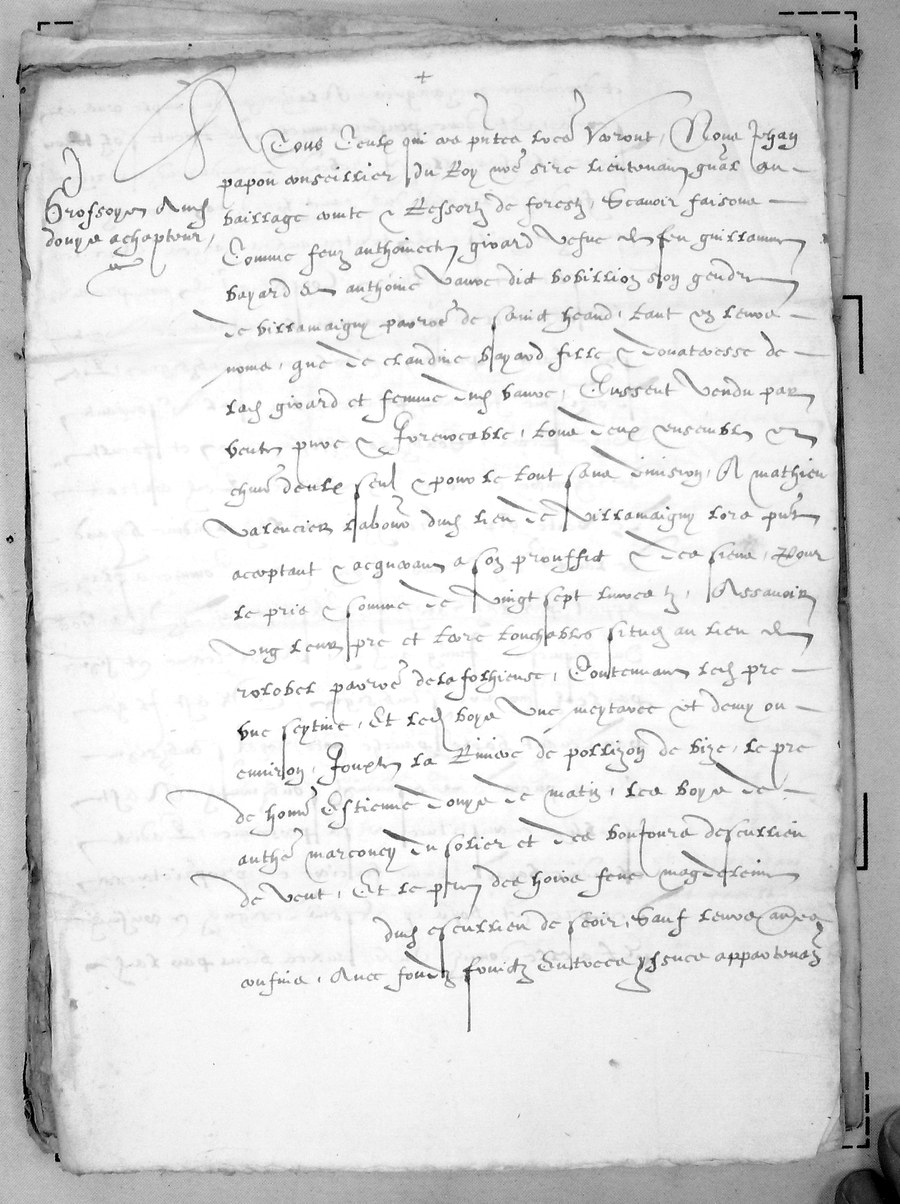 +
A Tous Ceulx qui ces pntes lrés Verront, Nous Jehan
papon conseillier du Roy nre sire lieutenant gnal au
Grossoyé
bailliage conte & Ressortz de forestz, Scavoir faisons
douze achapteur,
Comme feuz anthoinette girard vefue de feu guillaume
bayard & anthoine vauve dict bobillion son gendre
de villamaigny parroé de sainct heand, tant en leurs
noms, que de claudine bayard fille & donateresse de
lad girard et femme dud vauve, Eussent Vendu par
vente pure & Jrrevocable, tous deux ensemble et
chun deulx seul & pour le tout sans division, A mathieu
Valencier labour dud lieu de villamaigny lors pnt
acceptant & acquerant a son prouffict & des siens, Pour
le pris & somme de vingt sept livres tz, Assavoir
ung leur pre et terre touchables situez au lieu de
rolobel parroé de la folhieuse, Contennant led pre
une seytine, Et led boys une meytaree et demy ou
environ, Jouxte la Riviere de pollizon de bize, le pre
de homé Estienne douze de matin, les boys de
anthé marconey du solier et des bonjours descullieu
de vent, Et le pre des hoirs feue magdeleine
dud escullieu de seoir, Sauf leurs
confins, Avec fondz Entrees yssues appartenan